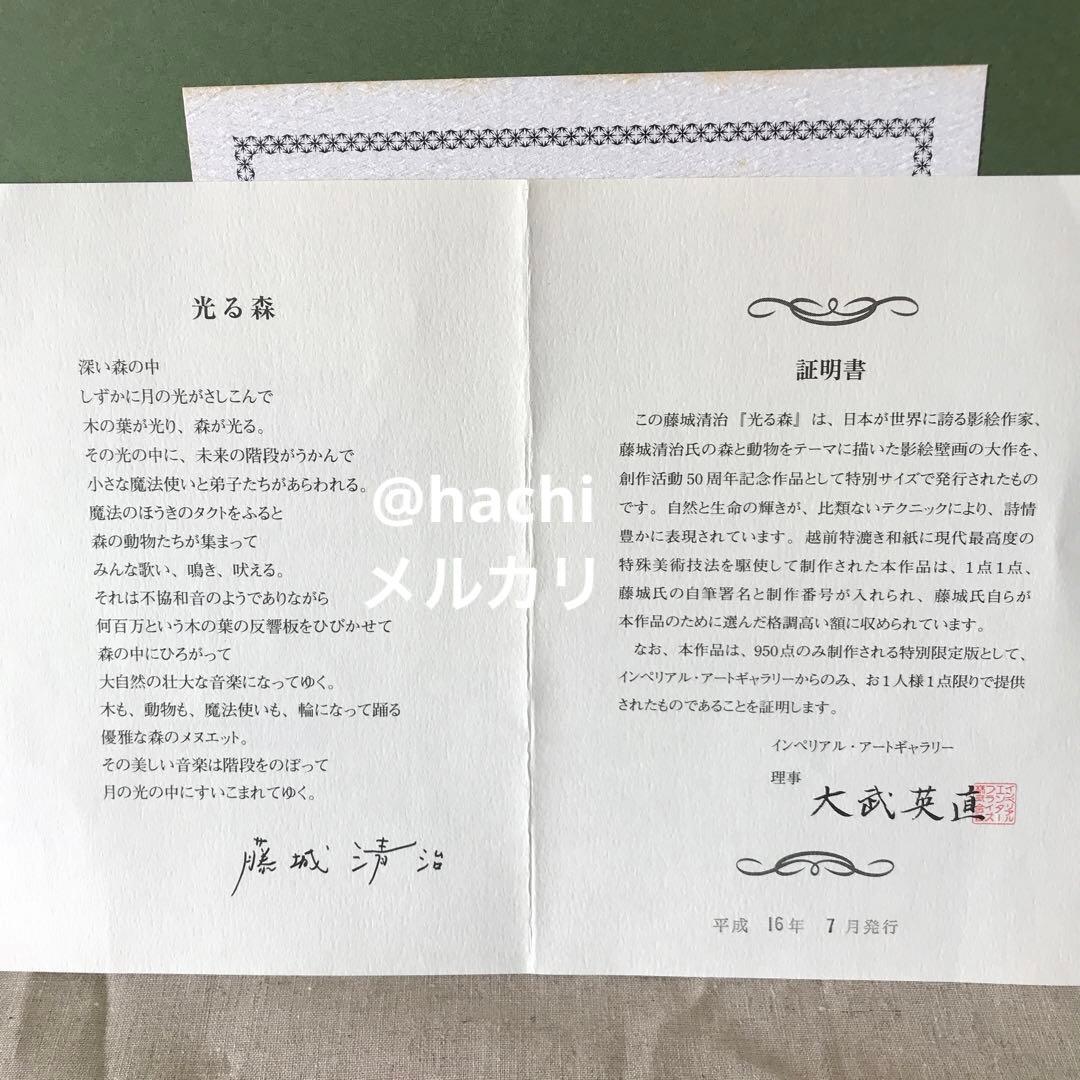 光る森
深い森の中
しずかに月の光がさしこんで
木の葉が光り、森が光る。
その光の中に、未来の階段がうかんで
小さな魔法使いと弟子たちがあらわれる。
魔法のほうきのタクトをふると
森の動物たちが集まって
みんな歌い、鳴き、吠える。
それは不協和音のようでありながら
何百万という木の葉の反響板をひびかせて
森の中にひろがって
大自然の壮大な音楽になってゆく。
木も、動物も、魔法使いも、輪になって踊る
優雅な森のメヌエット。
その美しい音楽は階段をのぼって
月の光の中にすいこまれてゆく。
藤城清治
証明書
この藤城清治『光る森』は、日本が世界に誇る影絵作家、
藤城清治氏の森と動物をテーマに描いた影絵壁画の大作を、
創作活動50周年記念作品として特別サイズで発行されたもの
です。自然と生命の輝きが、比類ないテクニックにより、詩情
豊かに表現されています。越前特漉き和紙に現代最高度の
特殊美術技法を駆使して制作された本作品は、1点1点、
藤城氏の自筆署名と制作番号が入れられ、藤城氏自らが
本作品のために選んだ格調高い額に収められています。
なお、本作品は、950点のみ制作される特別限定版として、
インペリアル・アートギャラリーからのみ、お1人様1点限りで提供
されたものであることを証明します。
インペリアル・アートギャラリー
理事
大武英直
平成 16年 7月発行
@hachi
メルカリ